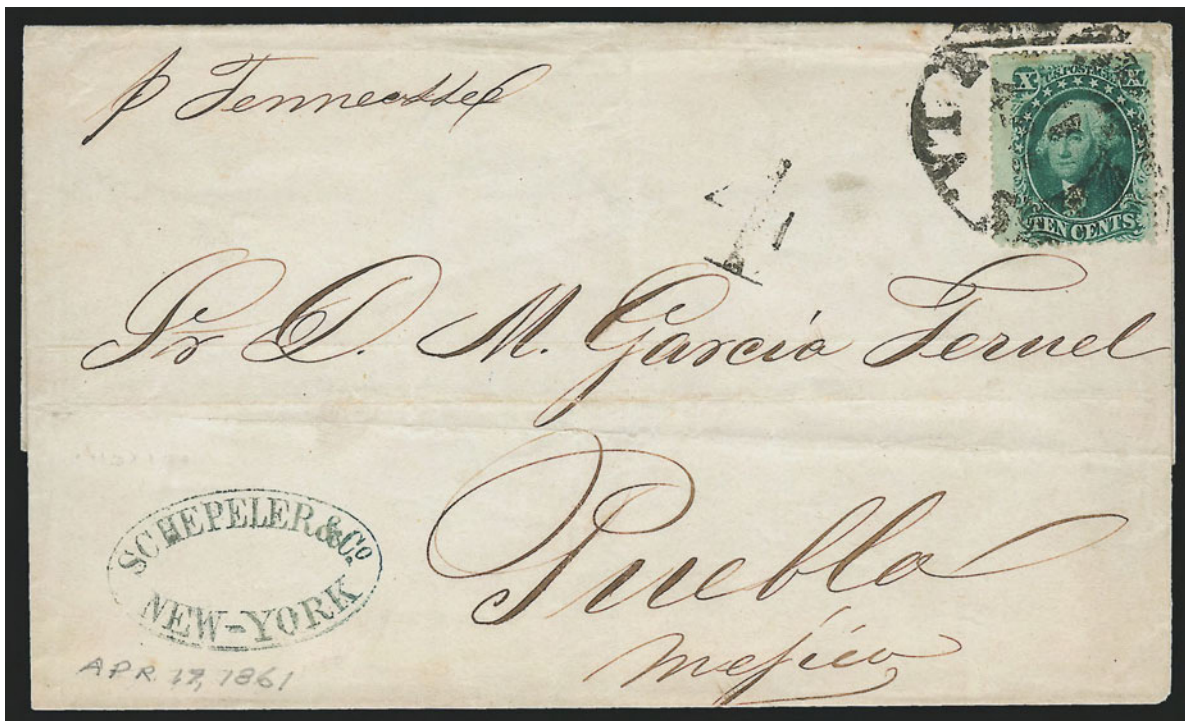 p Tennessee
X U.S. POSTAGE X
TEN CENTS
4
Sr D. M. García Teruel
Puebla
Mejico
SCHEPELER & Co.
NEW-YORK
APR. 17, 1861